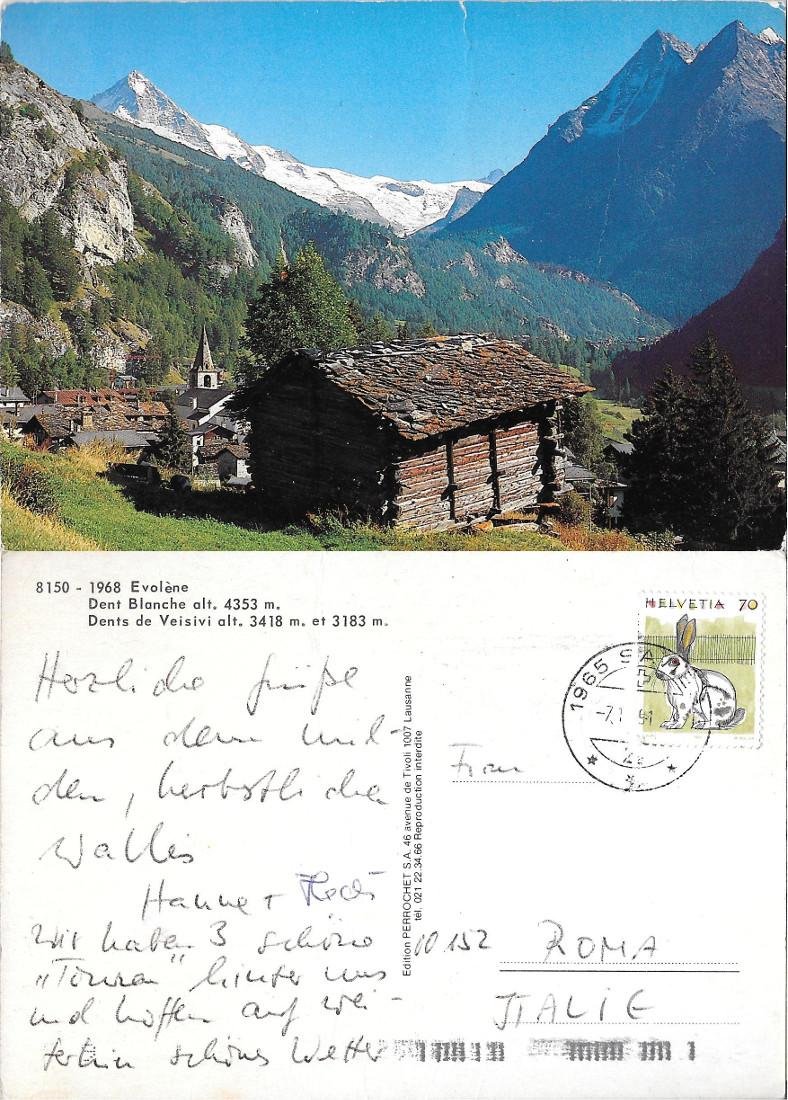 8150 - 1968 Evolène
Dent Blanche alt. 4353 m.
Dents de Veisivi alt. 3418 m. et 3183 m.
HELVETIA 70
1965 S
-7.1 91
Herzliche Grüße
aus dem mil-
den, herbstlichen
Wallis
Hanne +
Wir haben 3 schöne
„Touren" hinter uns
und hoffen auf wei-
terhin schönes Wetter
Edition PERROCHET S.A. 46 avenue de Tivoli 1007 Lausanne
tél. 021 22.34.66 Reproduction interdite
Frau
10152 ROMA
ITALIE